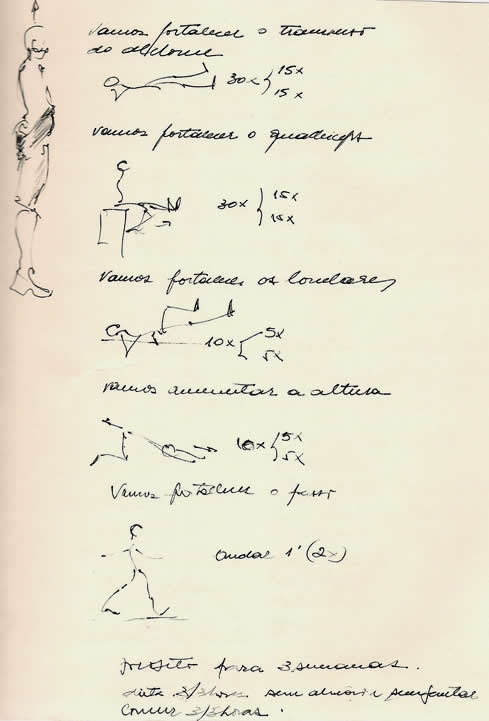 vamos fortalecer o transverso
do abdome
30x { 15x
15x
vamos fortalecer o quadriceps
30x { 15x
15x
vamos fortalecer os lombares
10x { 5x
5x
vamos aumentar a altura
10x { 5x
5x
Vamos fortalecer o passo
andar 1' (2x)
para 3 semanas.
dieta 3/3horas sem
comer 3/3horas.